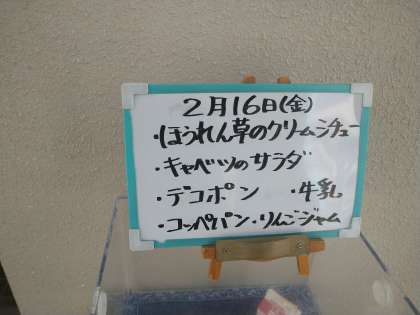 2月16日(金)
・ほうれん草のクリームシチュー
・キャベツのサラダ
・デコポン ・牛乳
・コッペパン・りんごジャム